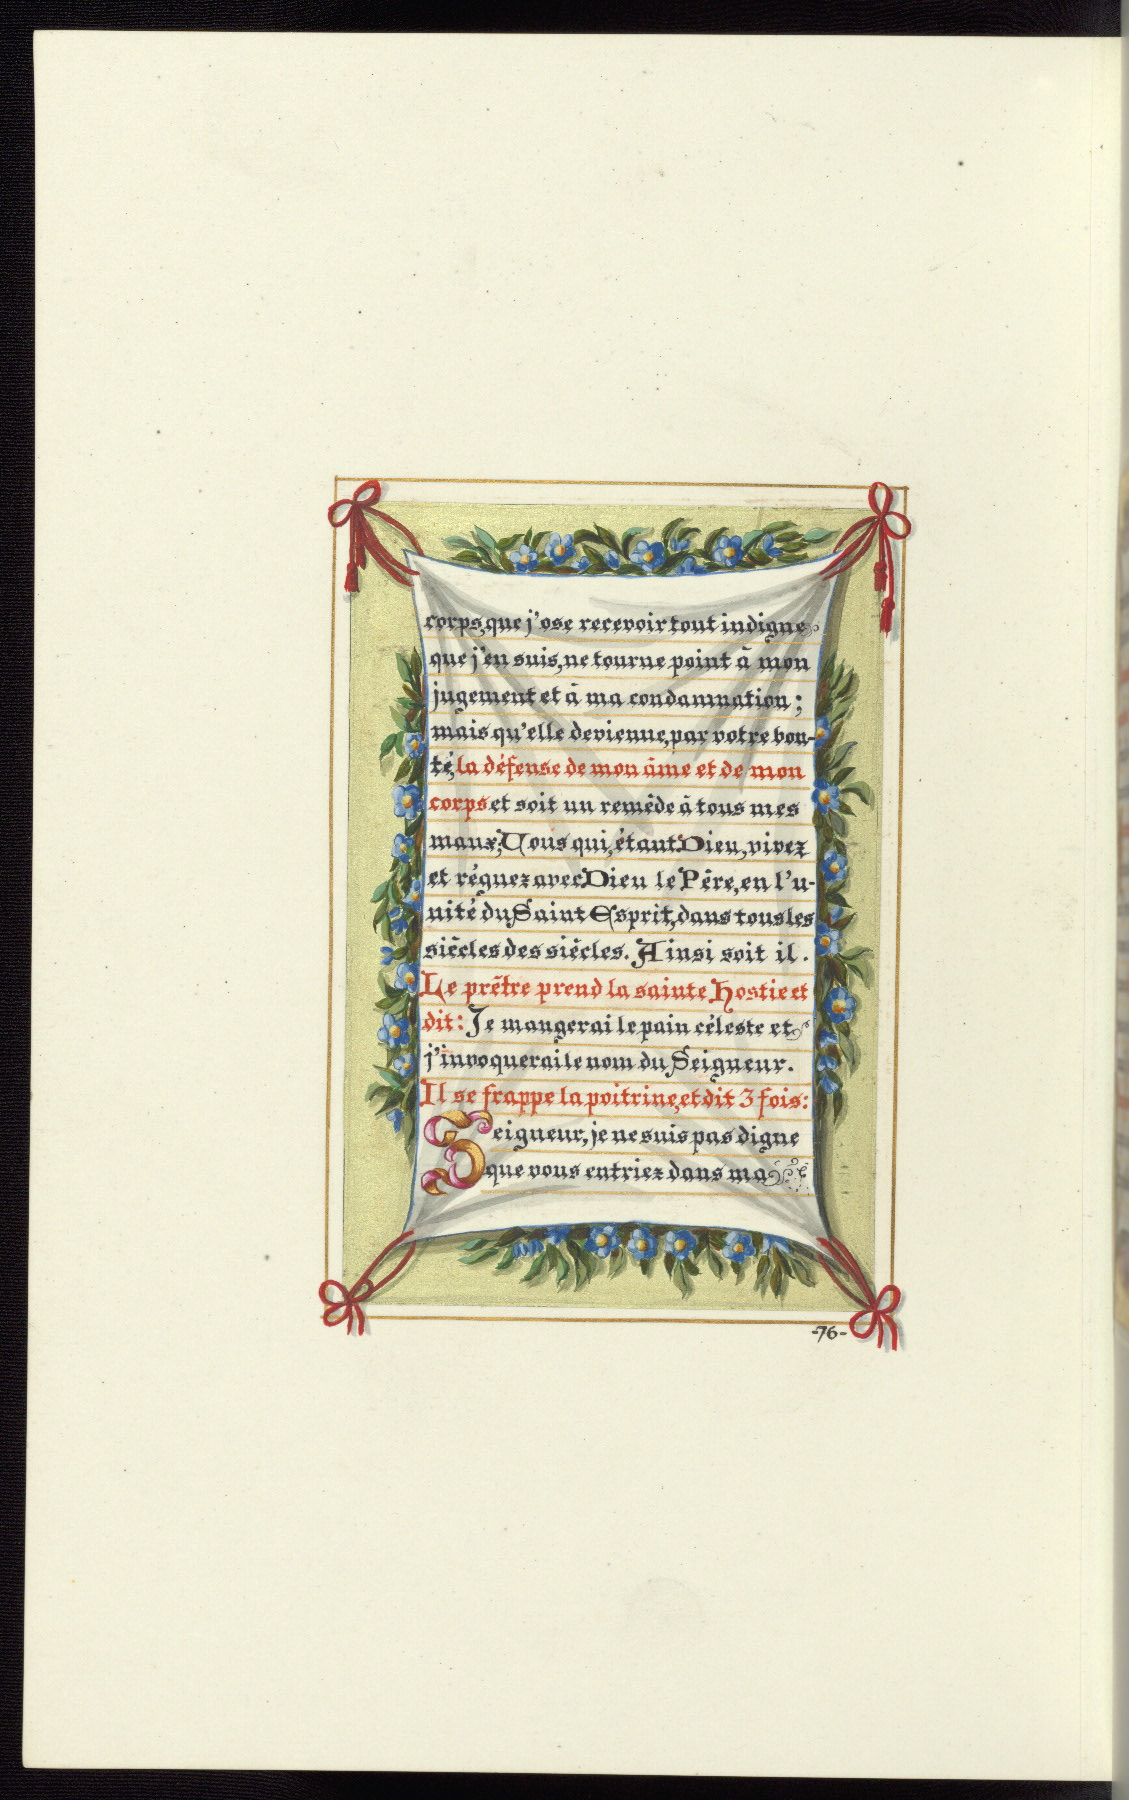 corps, que j'ose recevoir tout indigne
que j'en suis, ne tourne point à mon
jugement et à ma condamnation ;
mais qu'elle devienne, par votre bon-
té, la défense de mon âme et de mon
corps et soit un remède à tous mes
maux; Vous qui, étant Dieu, vivez
et régnez avec Dieu le Père, en l'u-
nité du Saint Esprit, dans tous les
siècles des siècles. Ainsi soit il.
Le prêtre prend la sainte Hostie et
dit : Je mangerai le pain céleste et
j'invoquerai le nom du Seigneur.
Il se frappe la poitrine, et dit 3 fois :
Seigneur, je ne suis pas digne
que vous entriez dans ma
-76-